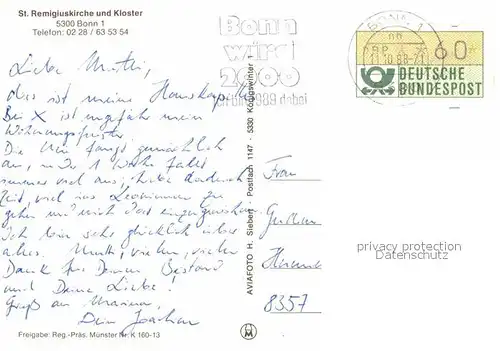 St. Remigiuskirche und Kloster
5300 Bonn 1
Telefon: 02 28 / 63 53 54
Liebe Mutti,
dies ist meine Hauskapelle
Bei X ist ungefähr mein
Wohnungsfenster
Die Uni fängt gemächlich
an, in der 1 Woche fällt
immer viel aus, habe dadurch
Zeit, viel ins zu
gehen und mich dort
Ich bin sehr glücklich über
alles. Mutti, vielen, vielen
Dank für Deinen Beistand
und Deine Liebe!
Gruß an Marina,
Dein Joachim
Freigabe: Reg.-Präs. Münster Nr. K 160-13
AVIAFOTO H. Siebert Postfach 1147 · 5330 Königswinter 1
Bonn
wird
2000
1989 dabei
BONN 1
60
DEUTSCHE
BUNDESPOST
Frau
8357
privacy protection
Datenschutz